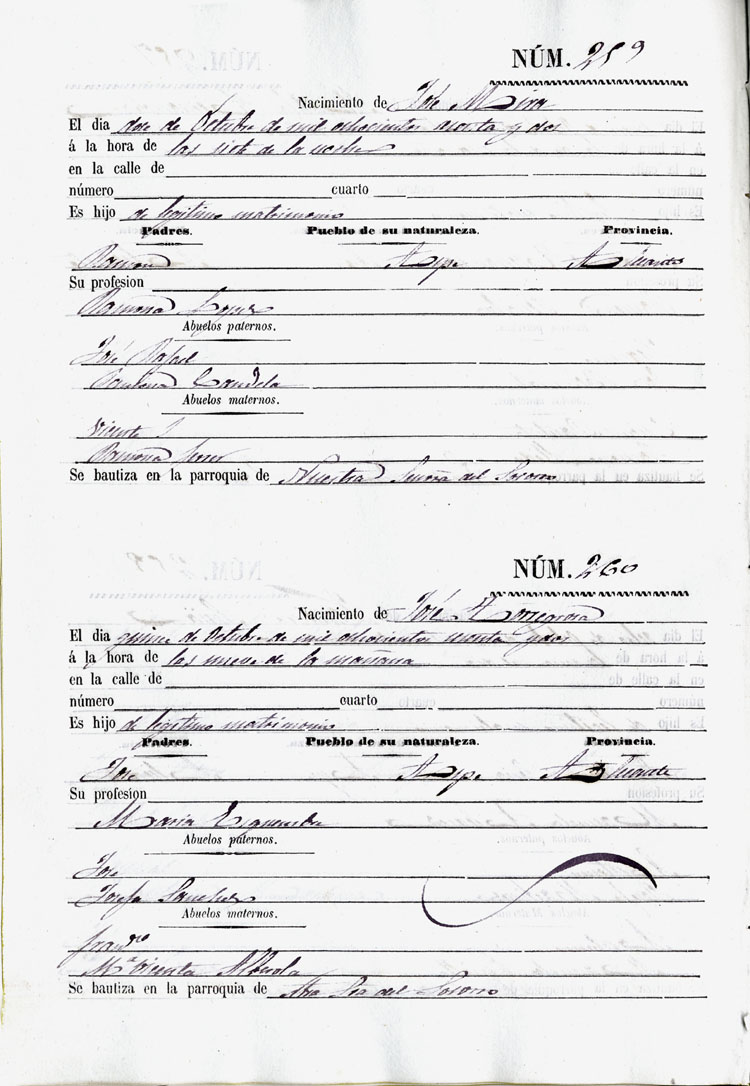 NÚM. 259
Nacimiento de José Mira
El dia doce de Octubre de mil ochocientos sesenta y dos
á la hora de las siete de la noche
en la calle de
número cuarto
Es hijo de legitimo matrimonio
Padres. Pueblo de su naturaleza. Provincia.
Ramon Aspe Alicante
Su profesion
Ramona Lopez
Abuelos paternos.
José Rafael
Candela
Abuelos maternos.
Vicente
Ramona Ferrer
Se bautiza en la parroquia de Nuestra Señora del Socorro
NÚM. 260
Nacimiento de José Torregrosa
El dia quince de Octubre de mil ochocientos sesenta y dos
á la hora de las nueve de la mañana
en la calle de
número cuarto
Es hijo de legitimo matrimonio
Padres. Pueblo de su naturaleza. Provincia.
Jose Aspe Alicante
Su profesion
Maria
Abuelos paternos.
Jose
Josefa Sanchez
Abuelos maternos.
Franco
Ma Vicenta
Se bautiza en la parroquia de Ntra Sra del Socorro